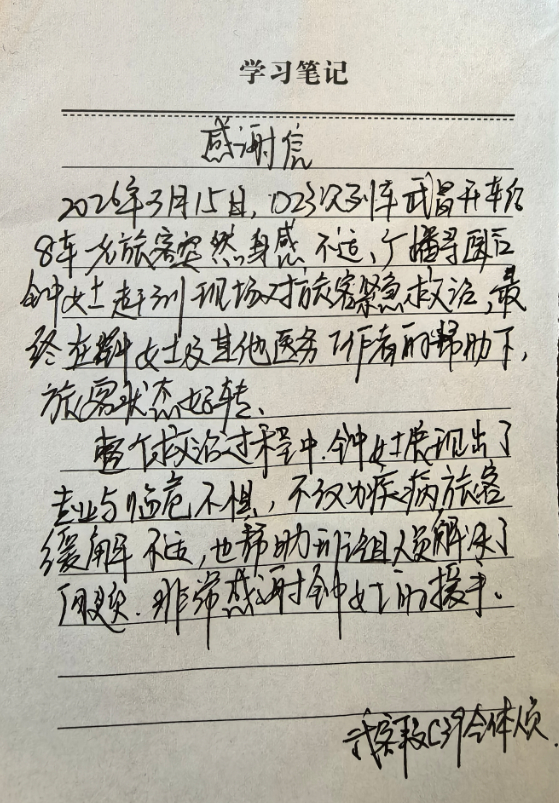 学习笔记
感谢信
2026年3月15日,D23次列车武昌开车后
8车一旅客突然身感不适、广播寻医后
钟女士赶到现场对旅客紧急救治,最
终在钟女士及其他医务工作者的帮助下,
旅客状态好转、
整个救治过程中.钟女士展现出了
专业与临危不惧,不仅为疾病旅客
缓解不适,也帮助列车组人员解决了
问题.非常感谢钟女士的援手。
全体人员.